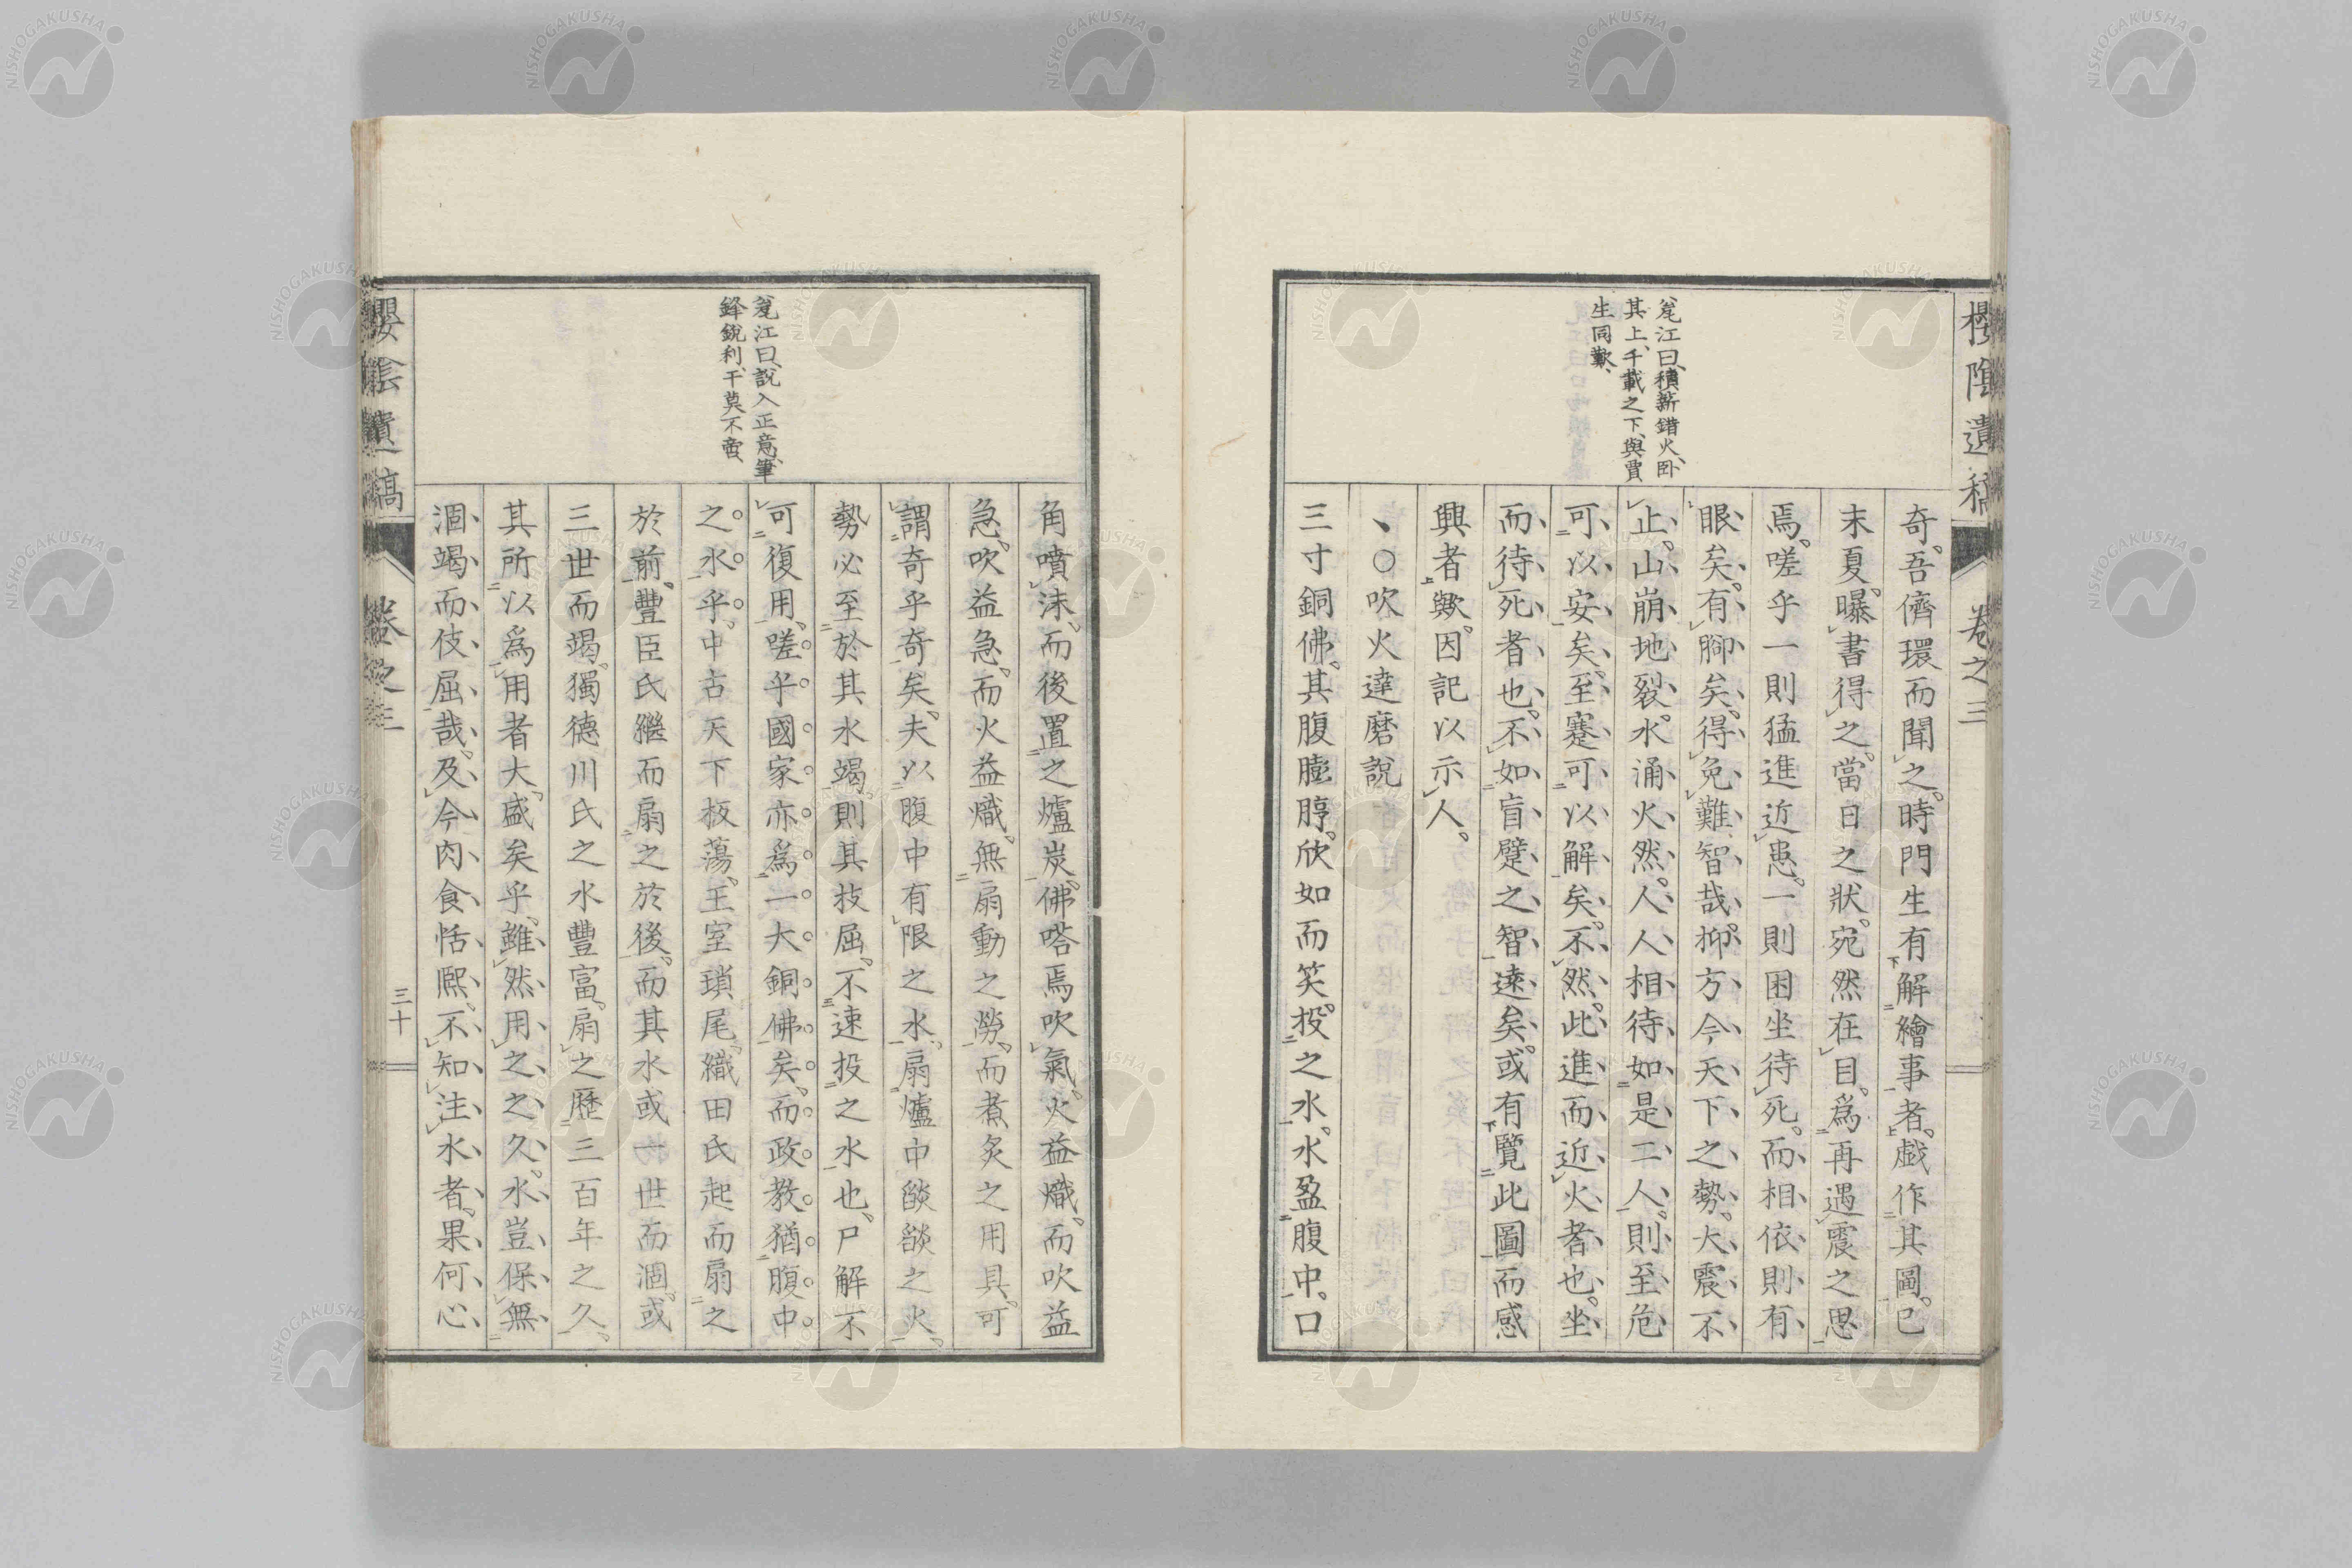 櫻陰遺稿 卷之三
毱江曰、積薪錯火、卧
其上、千載之下、與賈
生同歎、
奇。吾儕環而聞之。時門生有解繪事者。戲作其圖。已
末夏。曝書得之。當日之狀。宛然在目。爲再遇震之思
焉。嗟乎一則猛進近患。一則困坐待死。而相依則有
眼矣。有脚矣。得免難。智哉。抑方今天下之勢。大震不
止。山崩地裂。水涌火然。人人相待如是二人。則至危
可以安矣。至蹇可以解矣。不然。此進而近火者也。坐
而待死者也。不如盲躄之智遠矣。或有覽此圖而感
興者歟。因記以示人。
、○吹火達磨說
三寸銅佛。其腹膨脝。欣如而笑。投之水。水盈腹中。口
毱江曰、說入正意、筆
鋒銳利、干莫不啻、
角噴沫。而後置之爐炭。佛嗒焉吹氣。火益熾。而吹益
急。吹益急。而火益熾。無扇動之勞。而煮炙之用具。可
謂奇乎奇矣。夫以腹中有限之水。扇爐中燄燄之火。
勢必至於其水竭。則其技屈。不速投之水也。尸解不
可復用。嗟乎國家亦爲一大銅佛矣。而政教猶腹中
之水乎。中古天下板蕩。王室瑣尾。織田氏起而扇之
於前。豐臣氏繼而扇之於後。而其水或一世而涸。或
三世而竭。獨德川氏之水豐富。扇之歷三百年之久。
其所以爲用者大。盛矣乎。雖然用之之久。水豈保無
涸竭而伎屈哉。及今肉食恬熈。不知注水者。果何心
櫻陰遺稿 卷之三 三十
NISHOGAKUSHA